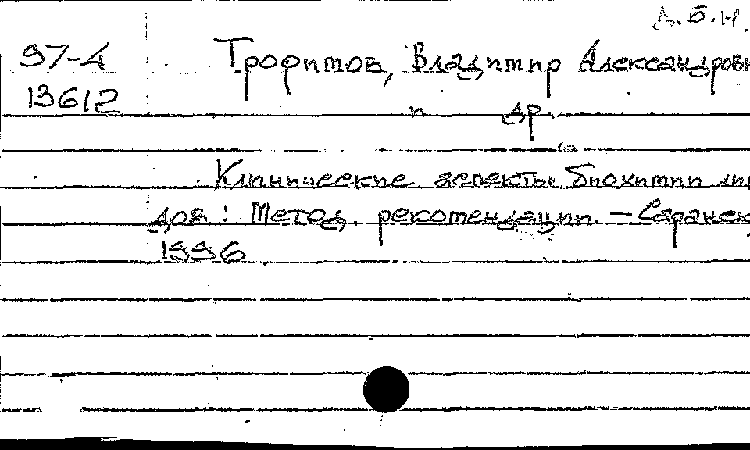 Д.Б.Н.
97-4 Трофимов, Владимир Александрови
13612 и др.
Клинические аспекты биохимии липи
дов: Метод. рекомендации. – Саранск
1996